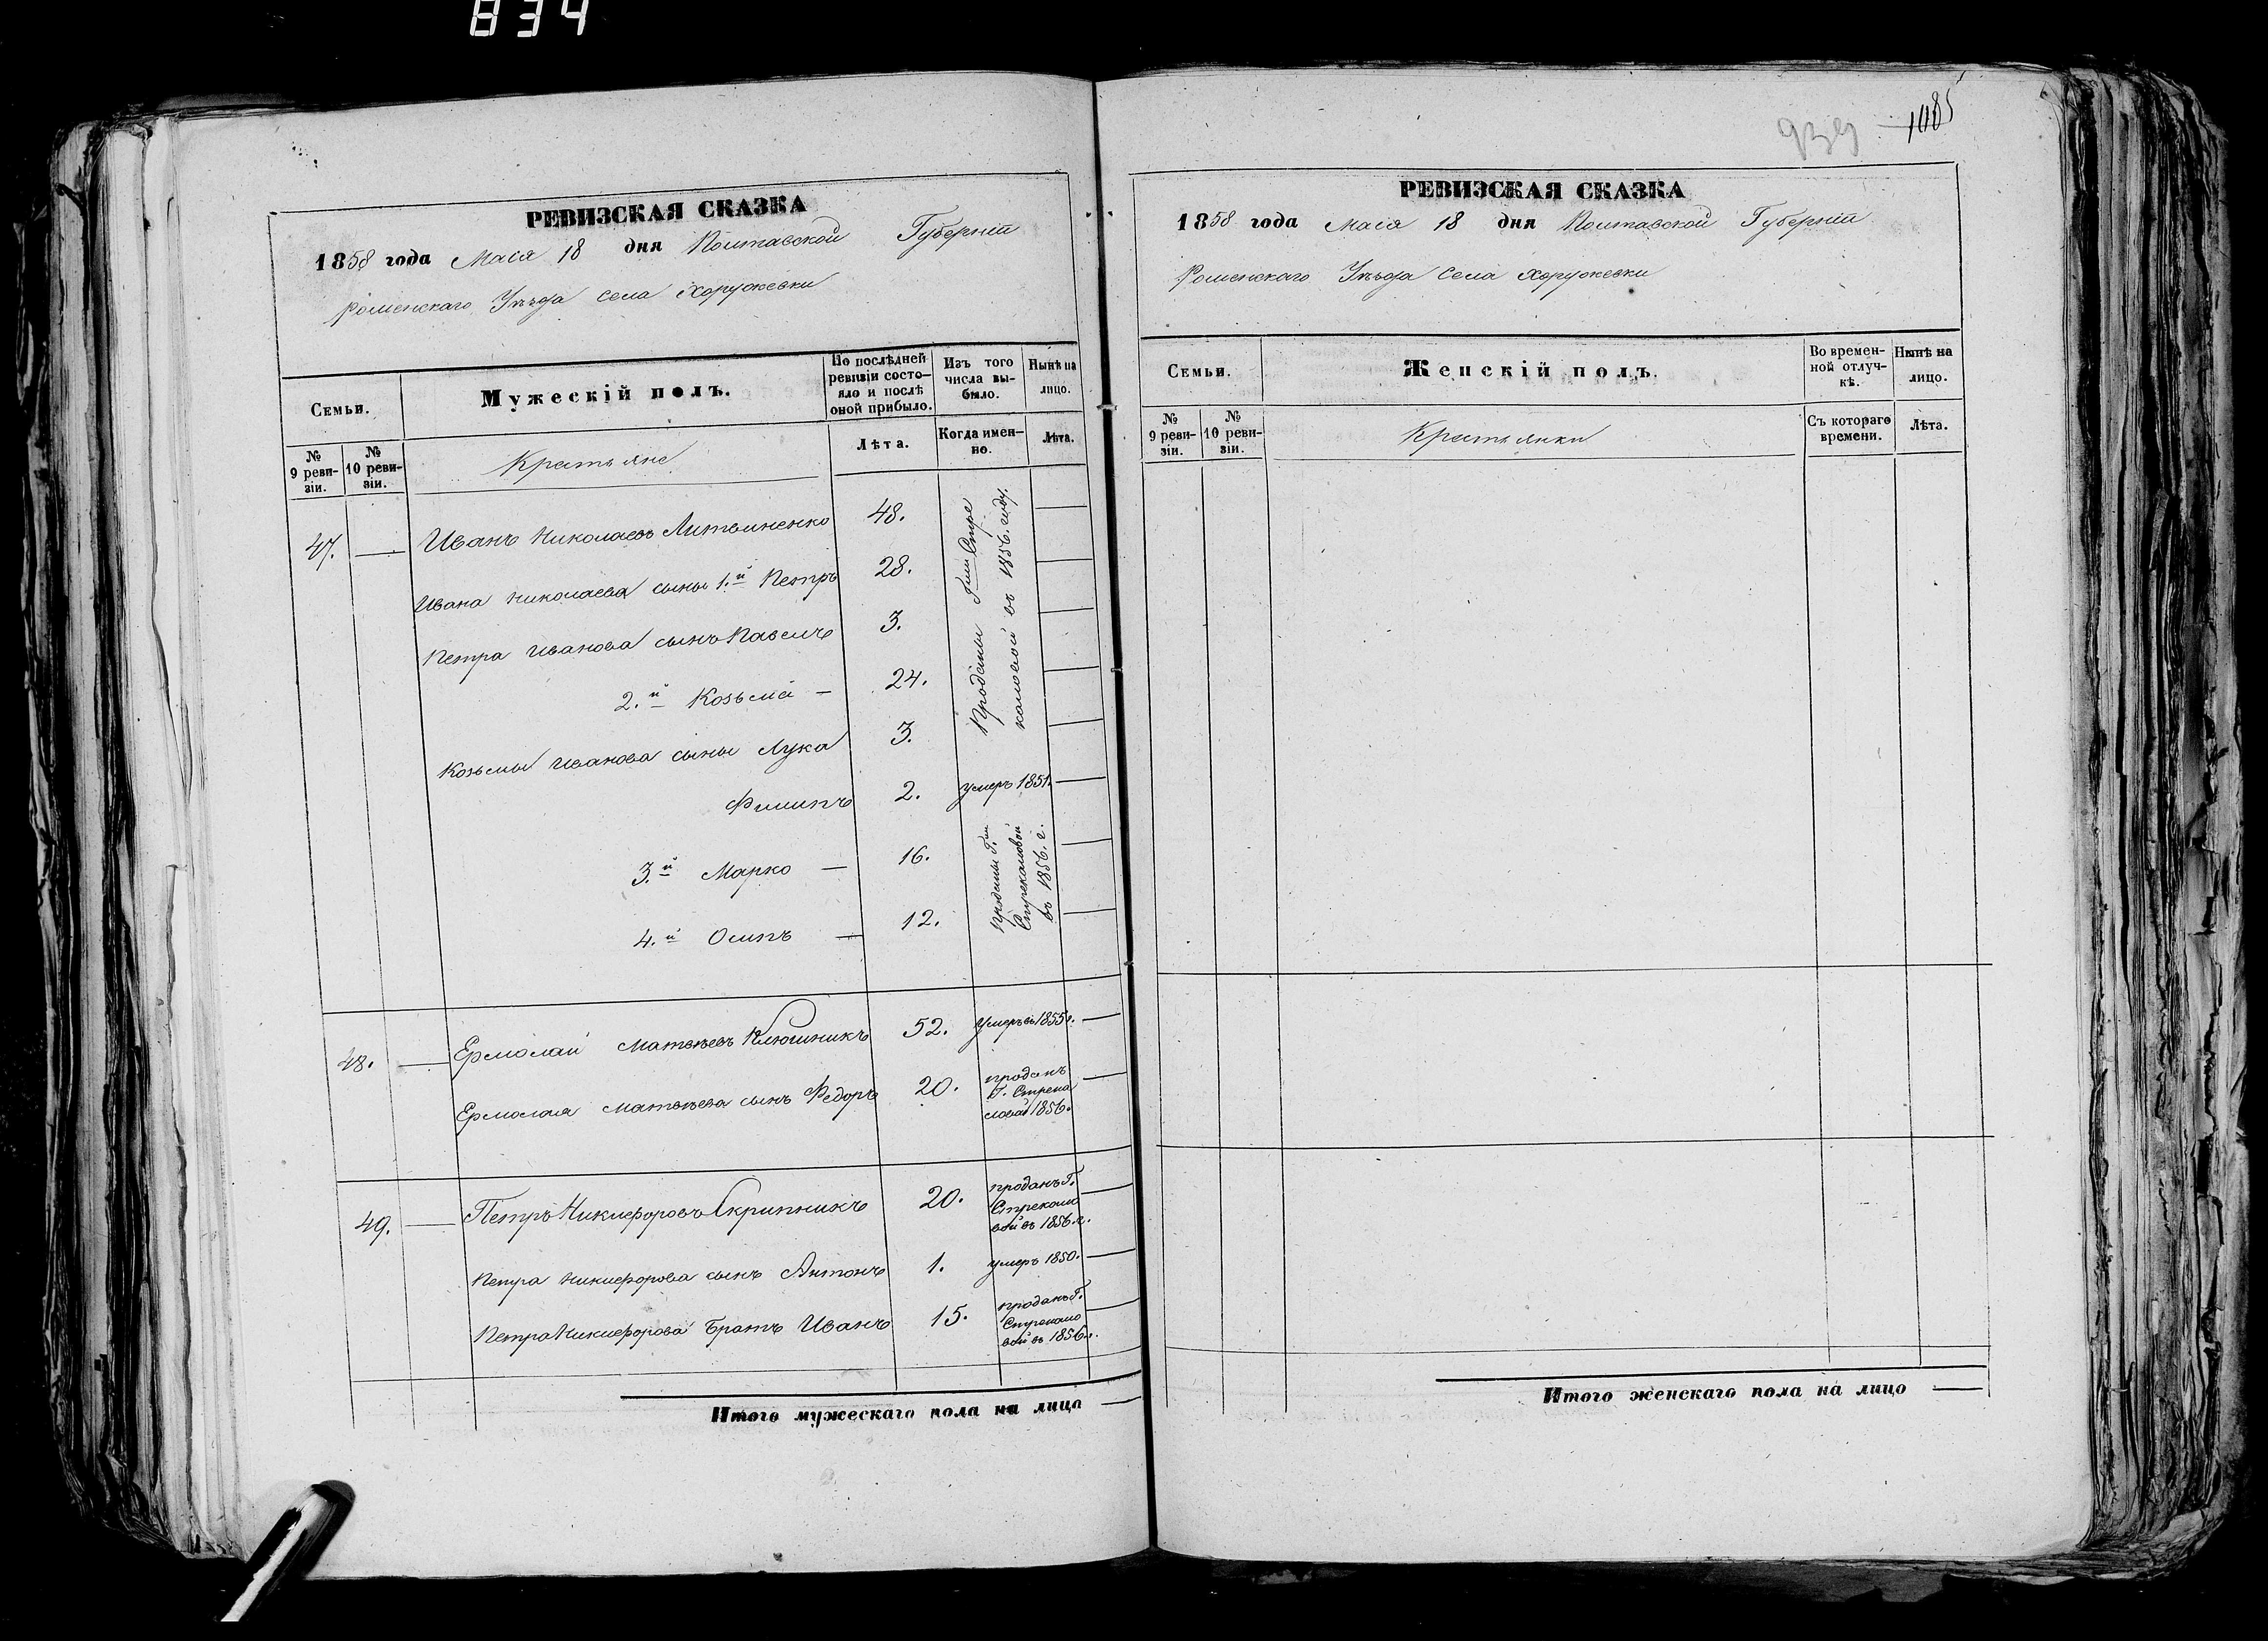 834
РЕВИЗСКАЯ СКАЗКА
1858 года Маія 18 дня Полтавской Губерніи
Роменскаго Уѣзда Села Хоружевки
Семьи.
Мужескій полъ.
По послѣдней ревизіи состояло и послѣ оной прибыло.
Изъ того числа выбыло.
Нынѣ на лицо.
№ 9 ревизіи.
№ 10 ревизіи.
Крестьяне
Лѣта.
Когда именно.
Лѣта.
47. — Иванъ Николаевъ Литвиненко 48. —
Ивана Николаева сыны 1.й Петръ 28. —
Петра Иванова сынъ Павелъ 3. —
2.й Козьма — 24. —
Козьмы Иванова сыны Лука 3. —
Проданы Г-жи Стрекаловой въ 1856. году.
Филипъ 2. умеръ 1851. —
3.й Марко — 16. —
4.й Осипъ — 12. —
проданы Г-жи Стрекаловой въ 1856. г.
48. — Ермолай Матвѣевъ Ключникъ 52. Умеръ въ 1855 г. —
Ермолая Матвѣева сынъ Федоръ 20. проданъ Г. Стрекаловой 1856. —
49. — Петръ Никифоровъ Скрипникъ 20. проданъ Г. Стрекаловой въ 1856. г. —
Петра Никифорова сынъ Антонъ 1. умеръ 1850. —
Петра Никифорова Братъ Иванъ 15. проданъ Г. Стрекаловой въ 1856. г. —
Итого мужескаго пола на лицо —
1085
РЕВИЗСКАЯ СКАЗКА
1858 года Маія 18 дня Полтавской Губерніи
Роменскаго Уѣзда Села Хоружевки
Семьи.
Женскій полъ.
Во временной отлучкѣ.
Нынѣ на лицо.
№ 9 ревизіи.
№ 10 ревизіи.
Крестьянки
Съ котораго времени.
Лѣта.
Итого женскаго пола на лицо —